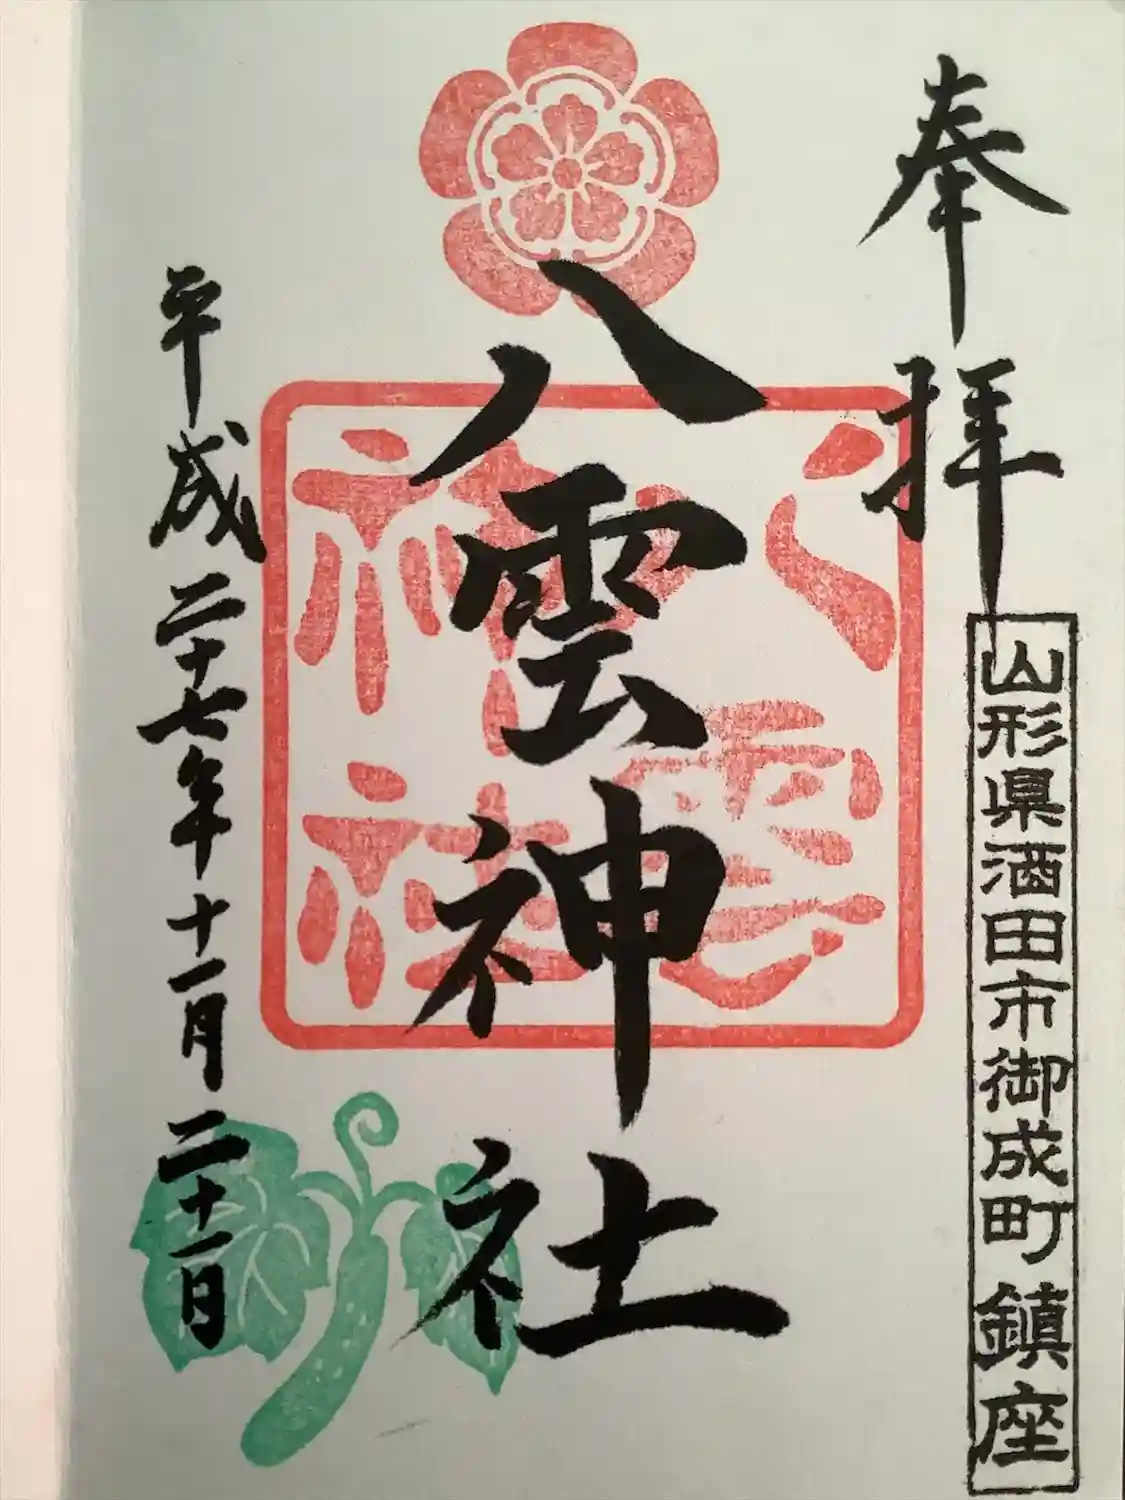 奉拝
山形県酒田市御成町鎮座
八雲神社
八雲神社
平成二十七年十一月二十一日